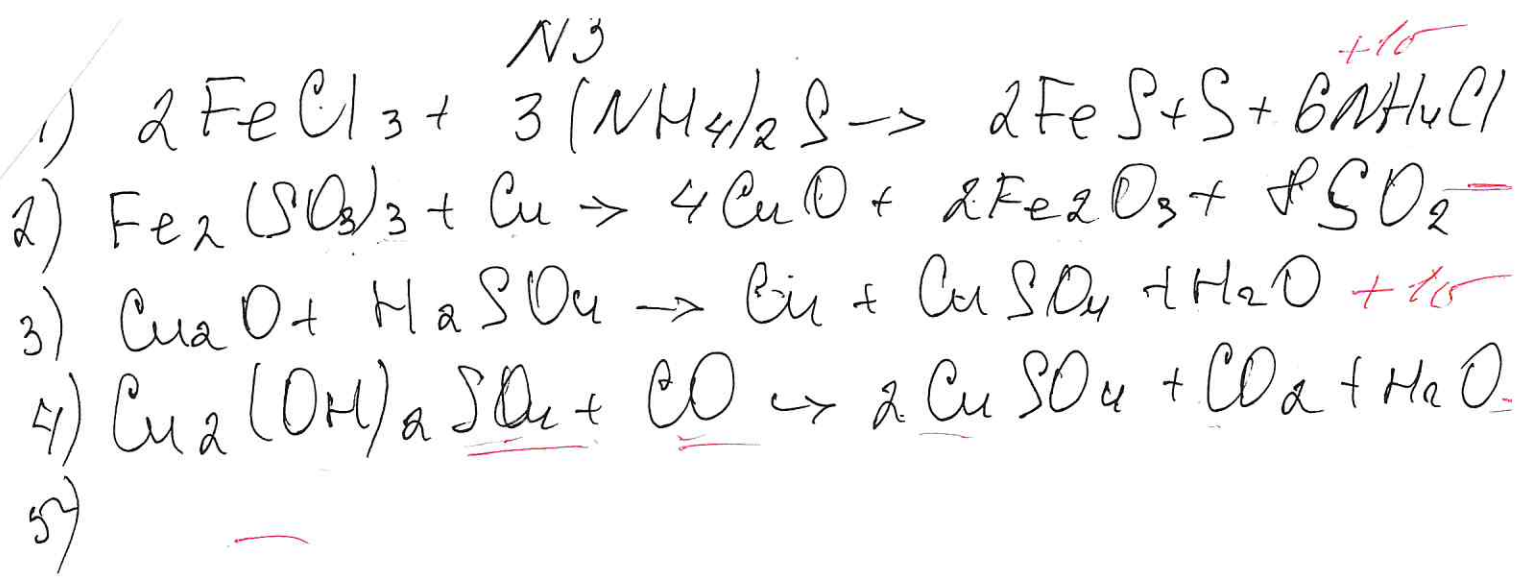 N3
+1б
1) 2FeCl3 + 3(NH4)2S -> 2FeS + S + 6NH4Cl
2) Fe2(SO3)3 + Cu -> 4CuO + 2Fe2O3 + 8SO2 -
3) Cu2O + H2SO4 -> Cu + CuSO4 + H2O +1б
4) Cu2(OH)2SO4 + CO -> 2CuSO4 + CO2 + H2O -
5) -